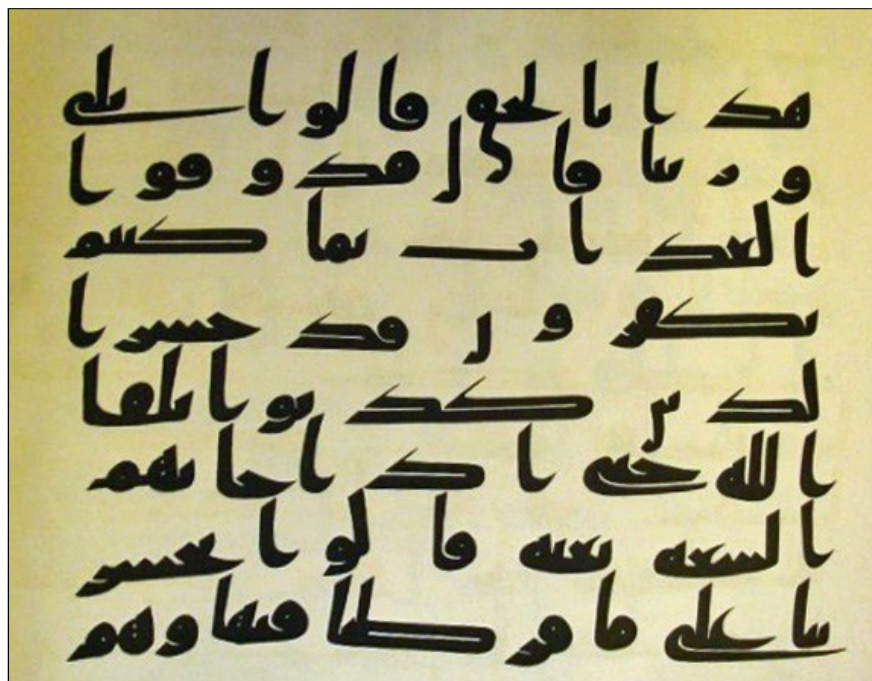 هذا بالحق قالوا بلى
وربنا قال فذوقوا
العذاب بما كنتم
تكفرون قد خسر ا
لذين كذبوا بلقا
الله حتى اذا جاتهم
السعه بغته قالوا يحسر
تنا على ما فرطنا فيها وهم